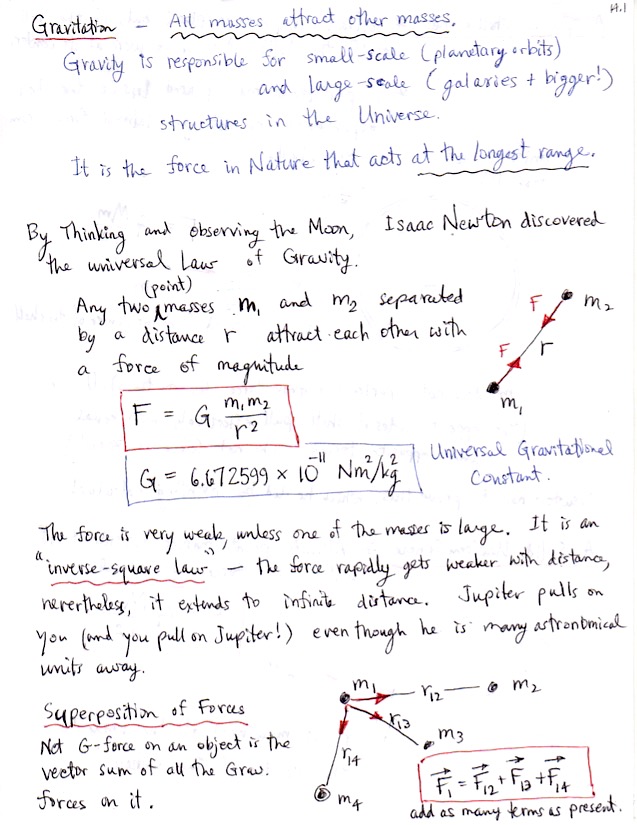 14.1
Gravitation – All masses attract other masses.
Gravity is responsible for small-scale (planetary orbits)
and large-scale (galaxies + bigger!)
structures in the Universe.
It is the force in Nature that acts at the longest range.
By Thinking and observing the Moon, Isaac Newton discovered
the universal Law of Gravity.
(point)
Any two masses m₁ and m₂ separated
by a distance r attract each other with
a force of magnitude
F
m₂
F
r
m₁
F = G m₁m₂/r²
G = 6.672599 × 10⁻¹¹ Nm²/kg²
Universal Gravitational
Constant.
The force is very weak, unless one of the masses is large. It is an
"inverse-square law" – the force rapidly gets weaker with distance,
nevertheless, it extends to infinite distance. Jupiter pulls on
you (and you pull on Jupiter!) even though he is many astronomical
units away.
Superposition of Forces
Net G-force on an object is the
vector sum of all the Grav.
forces on it.
m₁
r₁₂
m₂
r₁₃
m₃
r₁₄
m₄
F⃗₁ = F⃗₁₂ + F⃗₁₃ + F⃗₁₄
add as many terms as present.